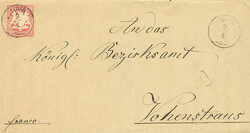 An das
königl. Bezirksamt
Vohenstraus
franco.